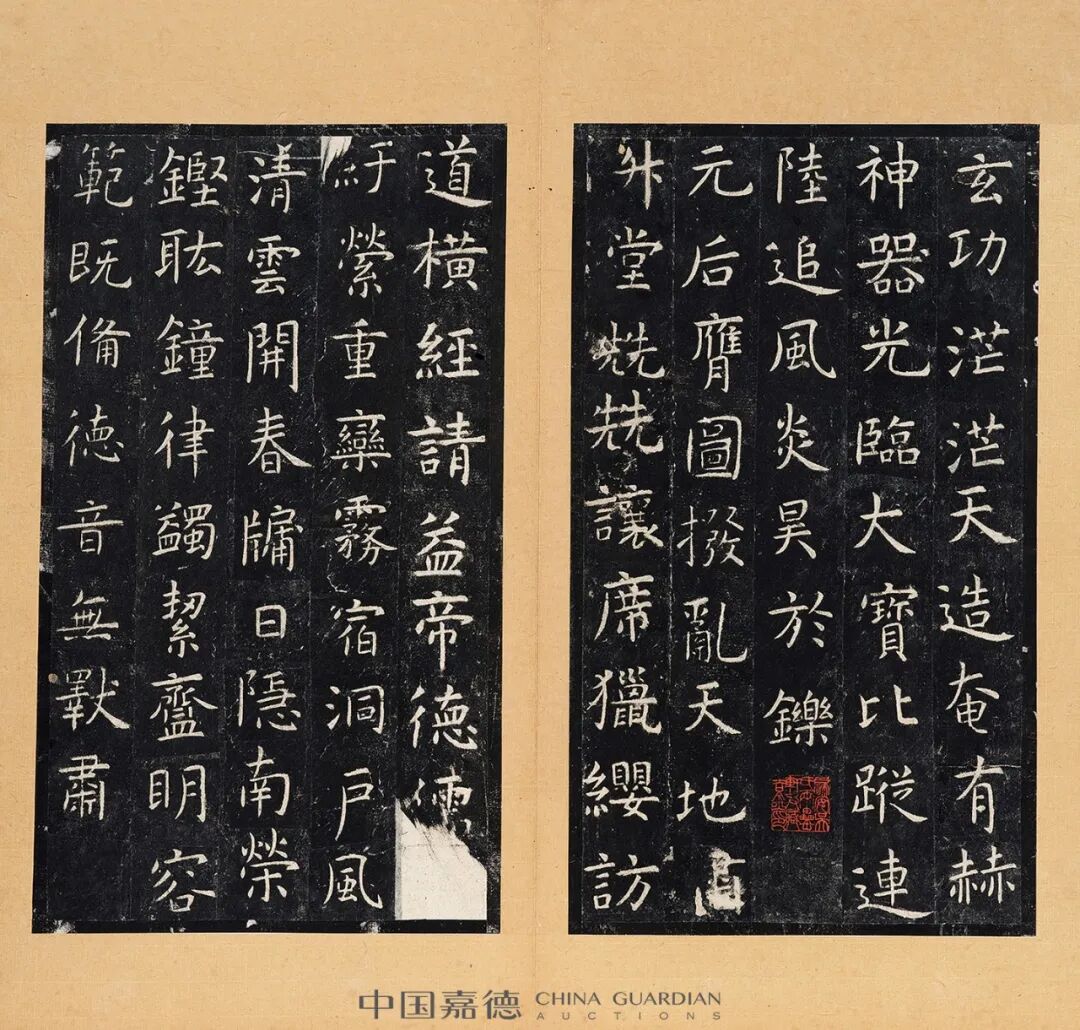 玄功茫茫天造奄有赫
神器光臨大寶比蹤連
陸追風炎昊於鑠
元后膺圖撥亂天地
升堂兟兟讓席獵纓訪
道橫經請益帝德
紆縈重欒霧宿洞戶風
清雲開春牖日隱南榮
鏗耾鐘律蠲絜齍明容
範既備德音無斁肅
中国嘉德 CHINA GUARDIAN
AUCTIONS